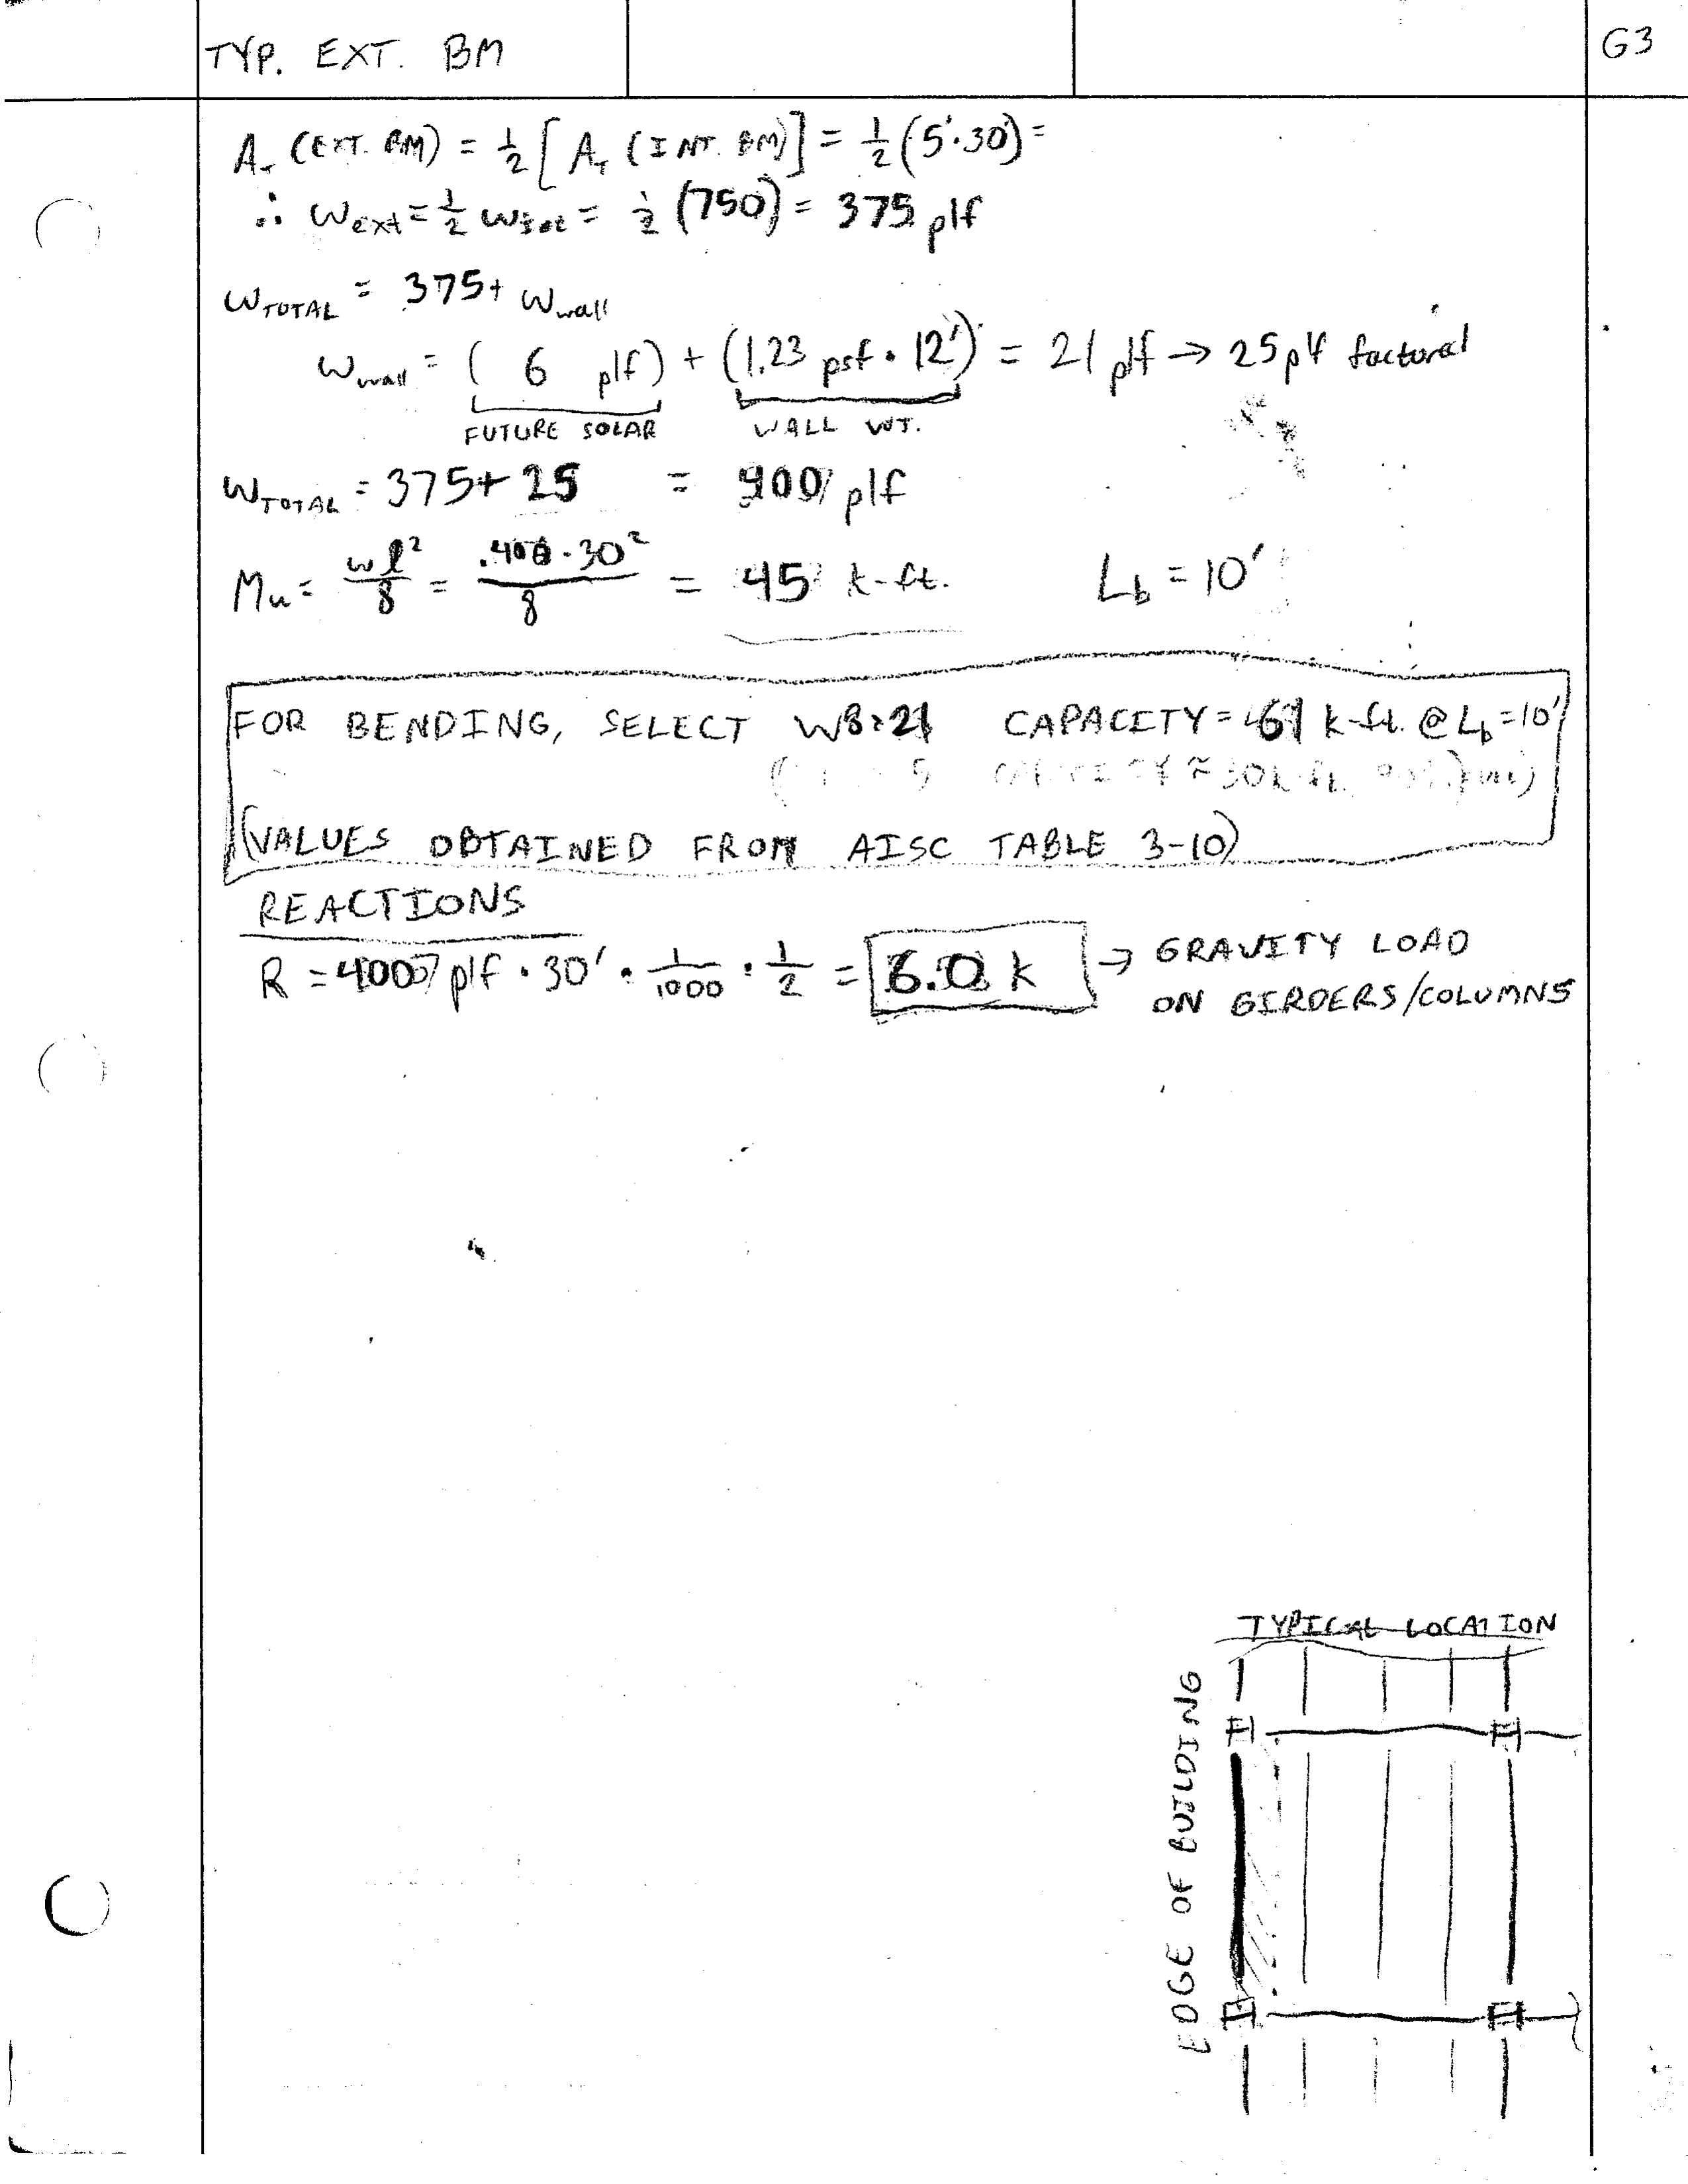 TYP. EXT. BM
G3
A_T (EXT. BM) = 1/2 [A_T (INT. BM)] = 1/2 (5'·30') =
∴ w_ext = 1/2 w_tot = 1/2 (750) = 375 plf
w_TOTAL = 375 + w_wall
w_wall = ( 6 plf) + (1.23 psf · 12') = 21 plf → 25 plf factored
FUTURE SOLAR WALL WT.
w_TOTAL = 375 + 25 = 400 plf
Mu = wl²/8 = .400·30²/8 = 45 k-ft. L_b = 10'
FOR BENDING, SELECT W8x21 CAPACITY = 61 k-ft. @ L_b = 10'
(VALUES OBTAINED FROM AISC TABLE 3-10)
REACTIONS
R = 400 plf · 30' · 1/1000 · 1/2 = 6.0 k → GRAVITY LOAD
ON GIRDERS/COLUMNS
TYPICAL LOCATION
EDGE OF BUILDING